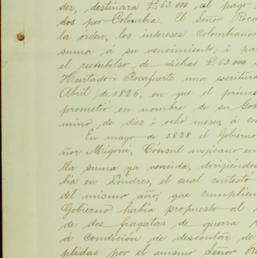 ser, destinara £63.000 al pago
dos por Colombia. El Señor Roca
la órden, los intereses Colombianos
suma á su vencimiento, i pa
el reembolso de dichas £63.000
Hurtado i Rocafuerte una escritura
Abril de 1826, en que el prime
prometió en nombre de su Gob
mino, de diez i ocho meses á con
En mayo de 1828 el Gobierno
ñor Migoni, Cónsul mejicano en
lla suma ya vencida, dirijiendos
ba en Londres, el cual contestó
del mismo año, que cumpliend
Gobierno habia propuesto al
de dos fragatas de guerra
á condicion de descontar de
ptidas por el mismo Señor